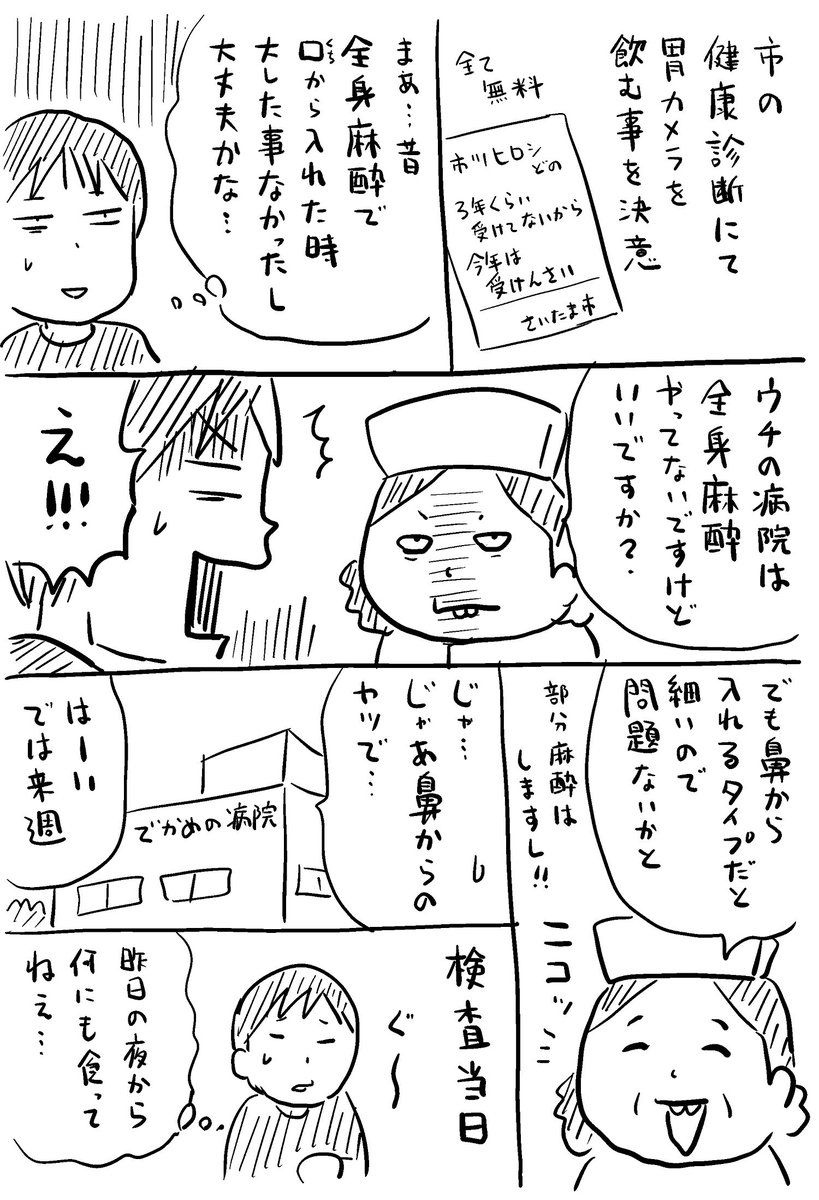 市の
健康診断にて
胃カメラを
飲む事を決意
全て
無料
ホリヒロシ
どの
3年くらい
受けてないから
今年は
受けんさい
さいたま市
まぁ…昔
全身麻酔で
口から入れた時
くち
大した事なかったし
大丈夫かな…
ウチの病院は
全身麻酔
やってないですけど
いいですか?
え!!!
でも鼻から
入れるタイプだと
細いので
問題ないかと
部分麻酔は
しますし!!
ニコッ
じゃ…
じゃあ鼻からの
ヤツで…
でかめの病院
はーい
では来週
検査当日
ぐ〜
昨日の夜から
何にも食って
ねえ…